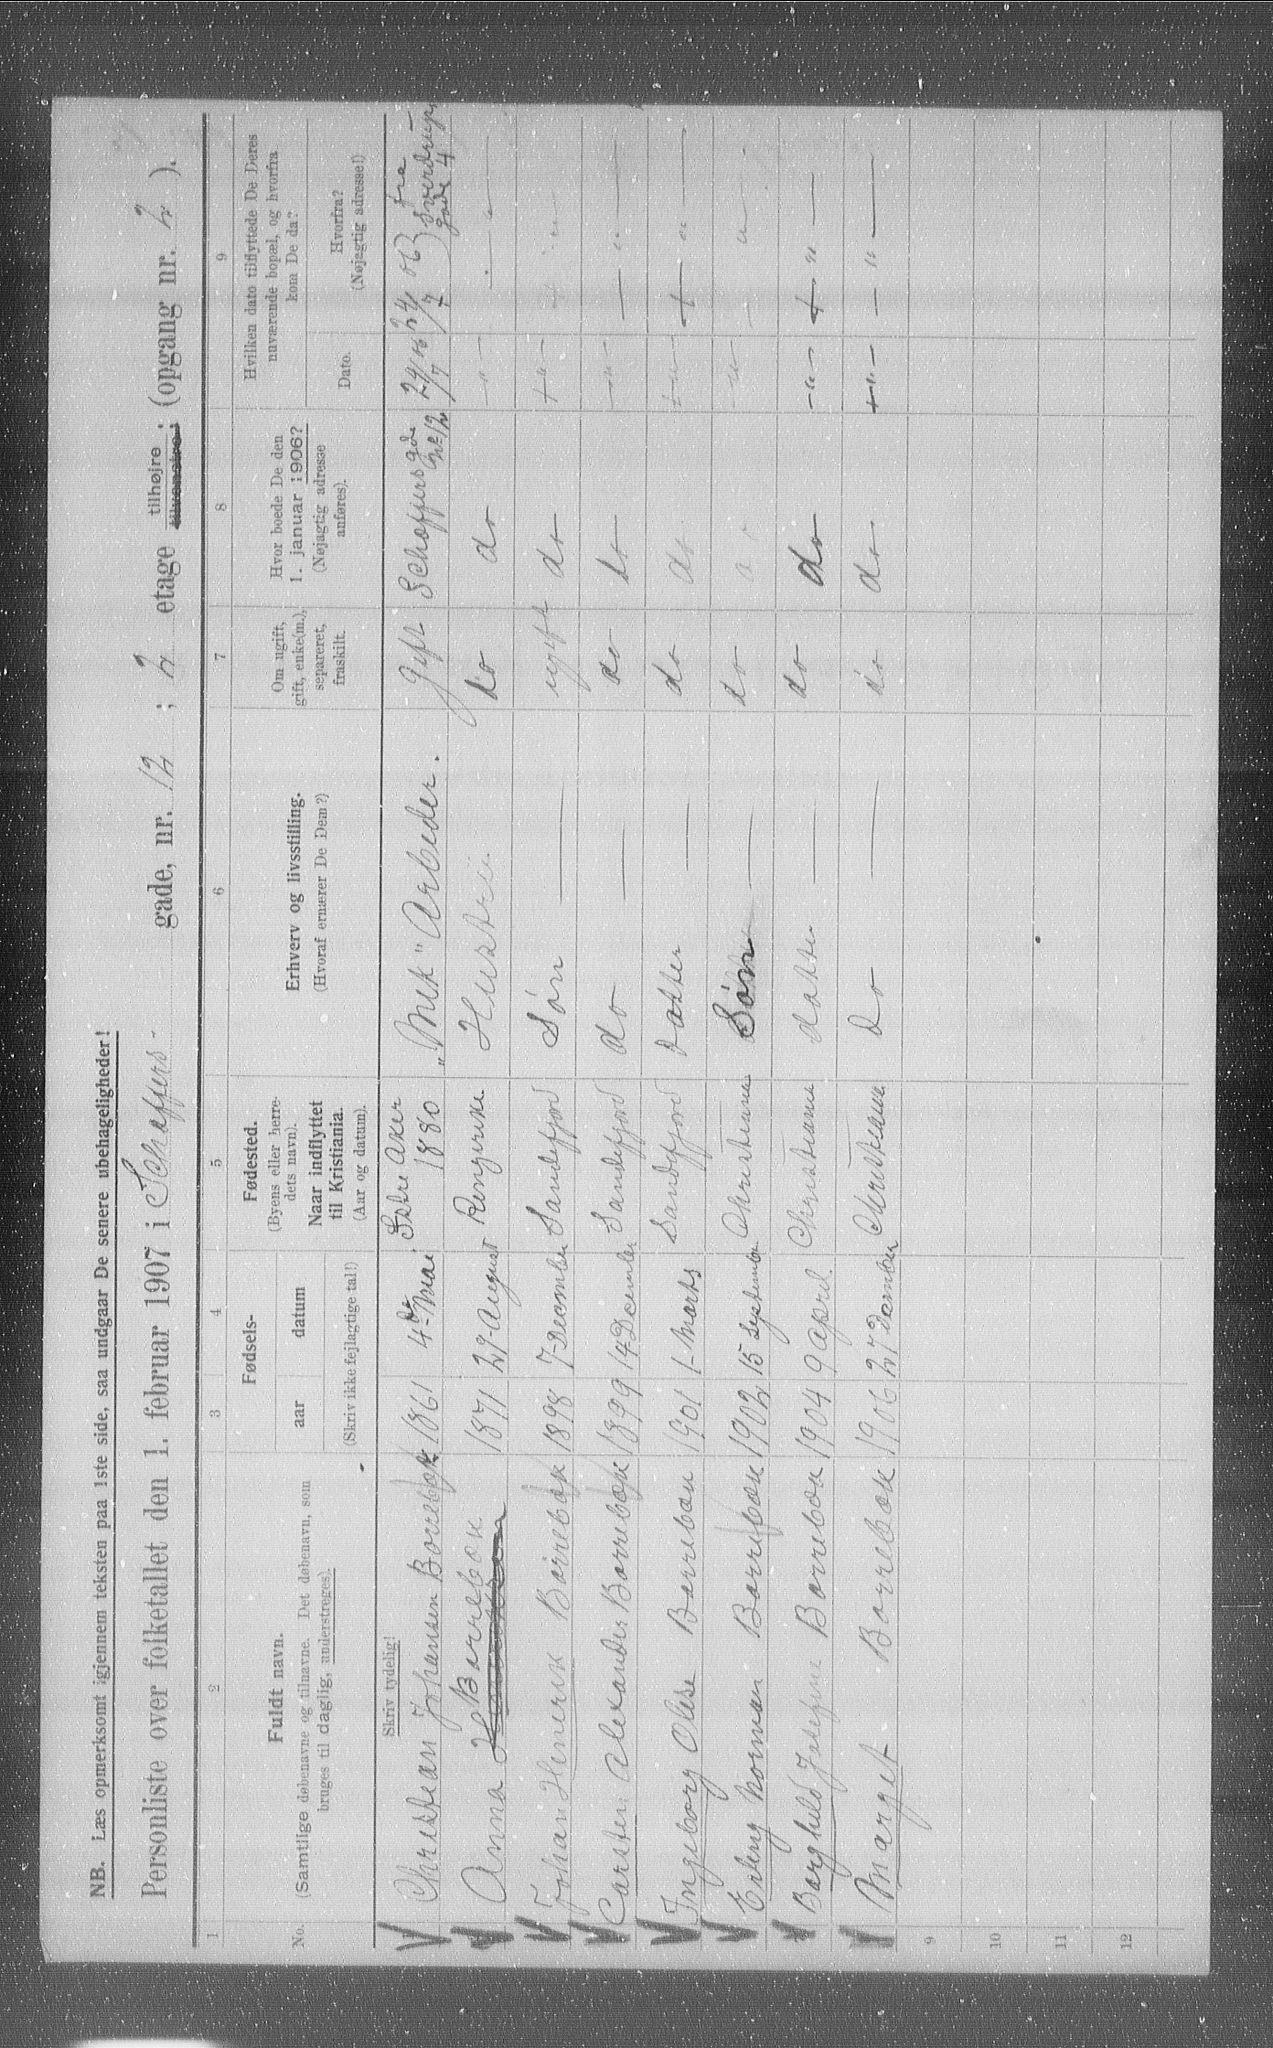 NB. Læs opmerksomt igjennem teksten paa 1ste side, saa undgaar De senere ubehageligheder!
Personliste over folketallet den 1. februar 1907 i Schæffers- gade, nr. 12 ; 2 etage tilhøjre ; tilvenstre ; (opgang nr. 2 ).
1 2 3 4 5 6 7 8 9
No.
Fuldt navn.
(Samtlige døbenavne og tilnavne. Det døbenavn, som
bruges til daglig, understreges).
Fødsels-
aar datum
(Skriv ikke fejlagtige tal!)
Fødested.
(Byens eller herre-
dets navn).
Naar indflyttet
til Kristiania.
(Aar og datum).
Erhverv og livsstilling.
(Hvoraf ernærer De Dem?)
Om ugift,
gift, enke(m.),
separeret,
fraskilt.
Hvor boede De den
1. januar 1906?
(Nøjagtig adresse
anføres).
Hvilken dato tilflyttede De Deres
nuværende bopæl, og hvorfra
kom De da?
Dato.
Hvorfra?
(Nøjagtig adresse!)
Skriv tydelig!
Christian Johansen Borrebæk 1861 4de Mai Østre Aker 1880 "Mek" Arbeder. Gift Schæffers gde No 12 24/7 06 24/7 06 fra Sverdrups gade 4
Anna Borrebæk 1871 29-August Ringerike Hustru do do - " - - " -
Johan Henrik Borrebæk 1898 7-December Sandefjord Søn — ugift do - " - "
Carsten Alexander Borrebæk 1899 14 December Sandefjord do — do do - " - - " -
Ingeborg Olise Borrebæk 1901 1-Marts Sandefjord datter — do do - " - - " -
Erling Norman Borrebæk 1902 15 September Christiania Søn — do do - " - - " -
Borghild Josefine Borrebæk 1904 9 April. Christiania datter — do do - " - - " -
Marget Borrebæk 1906 27 December Christiania do — do do - " - - " -
9
10
11
12